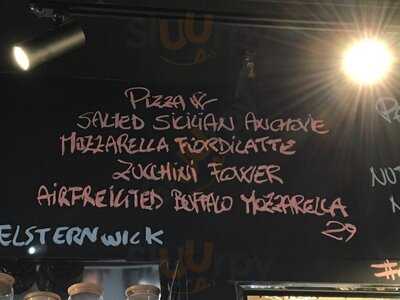 PIZZA W
SALTED SICILIAN ANCHOVIE
MOZZARELLA FIORDILATTE
ZUCCHINI FOWER
AIRFREIGTED BUFFALO MOZZARELLA
29
ELSTERNWICK